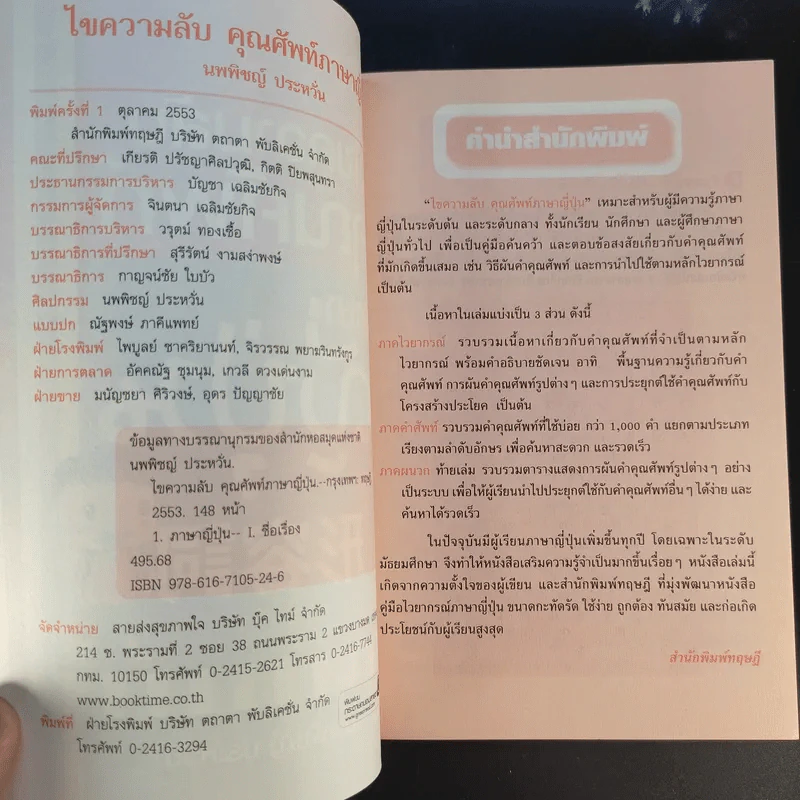 ไขความลับ คุณศัพท์ภาษาญี่
นพพิชญ์ ประหวั่น
พิมพ์ครั้งที่ 1 ตุลาคม 2553
สำนักพิมพ์ทฤษฎี บริษัท ตถาตา พับลิเคชั่น จำกัด
คณะที่ปรึกษา เกียรติ ปรัชญาศิลปวุฒิ, กิตติ ปิยพสุนทรา
ประธานกรรมการบริหาร บัญชา เฉลิมชัยกิจ
กรรมการผู้จัดการ จินตนา เฉลิมชัยกิจ
บรรณาธิการบริหาร วรุตม์ ทองเชื้อ
บรรณาธิการที่ปรึกษา สุรีรัตน์ งามสง่าพงษ์
บรรณาธิการ กาญจน์ชัย ใบบัว
ศิลปกรรม นพพิชญ์ ประหวั่น
แบบปก ณัฐพงษ์ ภาคีแพทย์
ฝ่ายโรงพิมพ์ ไพบูลย์ ชาคริยานนท์, จิรวรรณ พยามรินทรังกูร
ฝ่ายการตลาด อัคคณัฐ ชุมนุม, เกวลี ดวงเด่นงาม
ฝ่ายขาย มนัญชยา ศิริวงษ์, อุดร ปัญญาชัย
ข้อมูลทางบรรณานุกรมของสำนักหอสมุดแห่งชาติ
นพพิชญ์ ประหวั่น.
ไขความลับ คุณศัพท์ภาษาญี่ปุ่น.--กรุงเทพฯ: ทฤษฎี
2553. 148 หน้า
1. ภาษาญี่ปุ่น-- I. ชื่อเรื่อง
495.68
ISBN 978-616-7105-24-6
จัดจำหน่าย สายส่งสุขภาพใจ บริษัท บุ๊ค ไทม์ จำกัด
214 ซ. พระรามที่ 2 ซอย 38 ถนนพระราม 2 แขวงบางมด
กทม. 10150 โทรศัพท์ 0-2415-2621 โทรสาร 0-2416-7744
www.booktime.co.th
พิมพ์ที่ ฝ่ายโรงพิมพ์ บริษัท ตถาตา พับลิเคชั่น จำกัด
โทรศัพท์ 0-2416-3294
คำนำสำนักพิมพ์
"ไขความลับ คุณศัพท์ภาษาญี่ปุ่น" เหมาะสำหรับผู้มีความรู้ภาษา
ญี่ปุ่นในระดับต้น และระดับกลาง ทั้งนักเรียน นักศึกษา และผู้ศึกษาภาษา
ญี่ปุ่นทั่วไป เพื่อเป็นคู่มือค้นคว้า และตอบข้อสงสัยเกี่ยวกับคำคุณศัพท์
ที่มักเกิดขึ้นเสมอ เช่น วิธีผันคำคุณศัพท์ และการนำไปใช้ตามหลักไวยากรณ์
เป็นต้น
เนื้อหาในเล่มแบ่งเป็น 3 ส่วน ดังนี้
ภาคไวยากรณ์ รวบรวมเนื้อหาเกี่ยวกับคำคุณศัพท์ที่จำเป็นตามหลัก
ไวยากรณ์ พร้อมคำอธิบายชัดเจน อาทิ พื้นฐานความรู้เกี่ยวกับคำ
คุณศัพท์ การผันคำคุณศัพท์รูปต่างๆ และการประยุกต์ใช้คำคุณศัพท์กับ
โครงสร้างประโยค เป็นต้น
ภาคคำศัพท์ รวบรวมคำคุณศัพท์ที่ใช้บ่อย กว่า 1,000 คำ แยกตามประเภท
เรียงตามลำดับอักษร เพื่อค้นหาสะดวก และรวดเร็ว
ภาคผนวก ท้ายเล่ม รวบรวมตารางแสดงการผันคำคุณศัพท์รูปต่างๆ อย่าง
เป็นระบบ เพื่อให้ผู้เรียนนำไปประยุกต์ใช้กับคำคุณศัพท์อื่นๆ ได้ง่าย และ
ค้นหาได้รวดเร็ว
ในปัจจุบันมีผู้เรียนภาษาญี่ปุ่นเพิ่มขึ้นทุกปี โดยเฉพาะในระดับ
มัธยมศึกษา จึงทำให้หนังสือเสริมความรู้จำเป็นมากขึ้นเรื่อยๆ หนังสือเล่มนี้
เกิดจากความตั้งใจของผู้เขียน และสำนักพิมพ์ทฤษฎี ที่มุ่งพัฒนาหนังสือ
คู่มือไวยากรณ์ภาษาญี่ปุ่น ขนาดกะทัดรัด ใช้ง่าย ถูกต้อง ทันสมัย และก่อเกิด
ประโยชน์กับผู้เรียนสูงสุด
สำนักพิมพ์ทฤษฎี